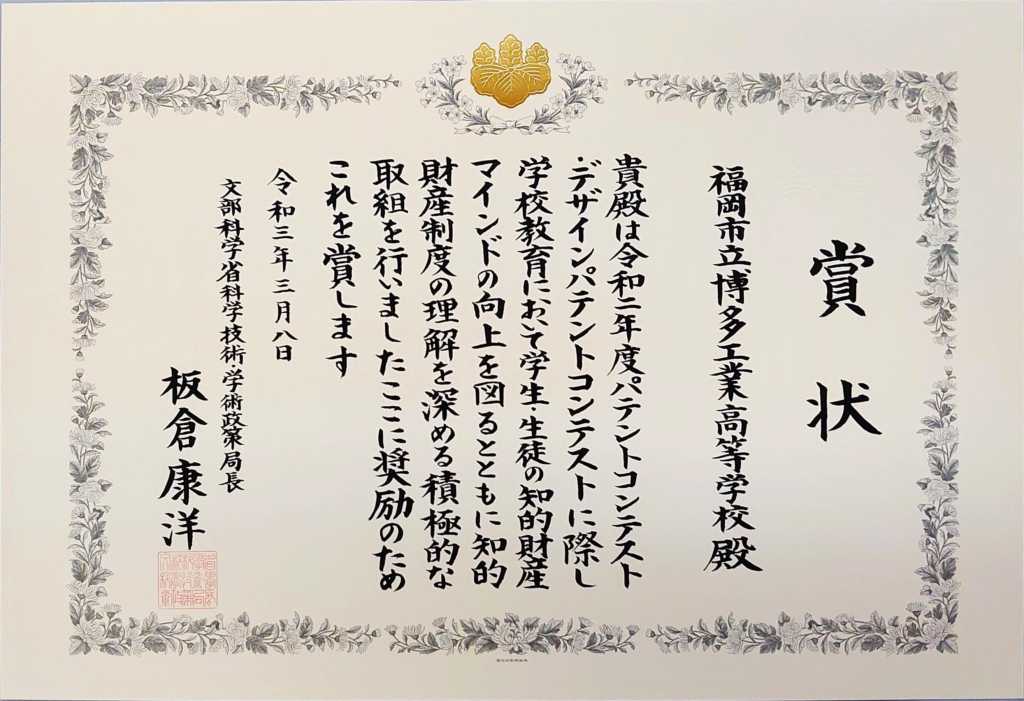 賞状
福岡市立博多工業高等学校殿
貴殿は令和二年度パテントコンテスト
・デザインパテントコンテストに際し
学校教育において学生・生徒の知的財産
マインドの向上を図るとともに知的
財産制度の理解を深める積極的な
取組を行いましたここに奨励のため
これを賞します
令和三年三月八日
文部科学省科学技術・学術政策局長
板倉康洋